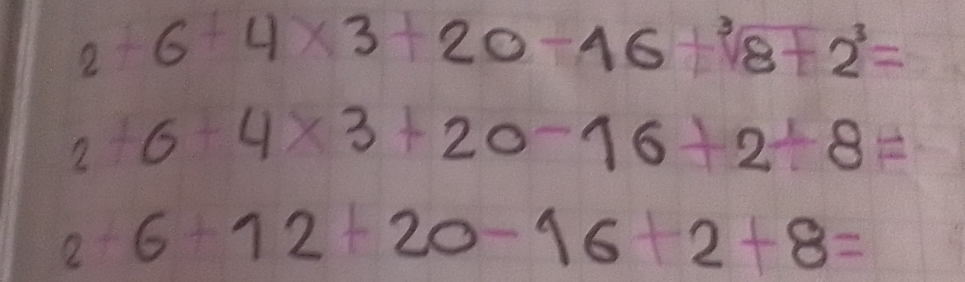 2+6+4×3+20-16+∛8+2³=
2+6+4×3+20-16+2+8=
2+6+12+20-16+2+8=